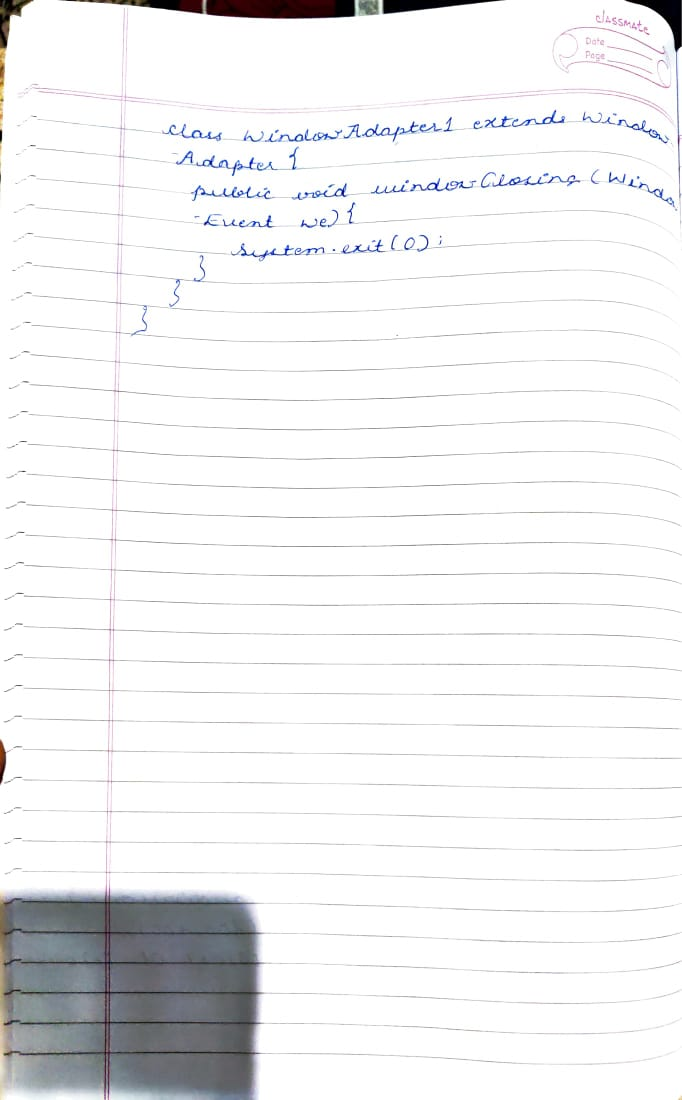 classmate
Date
Page
class WindowAdapter1 extends Window
-Adapter {
public void windowClosing (Windo
-Event we) {
System.exit(0);
}
}
}